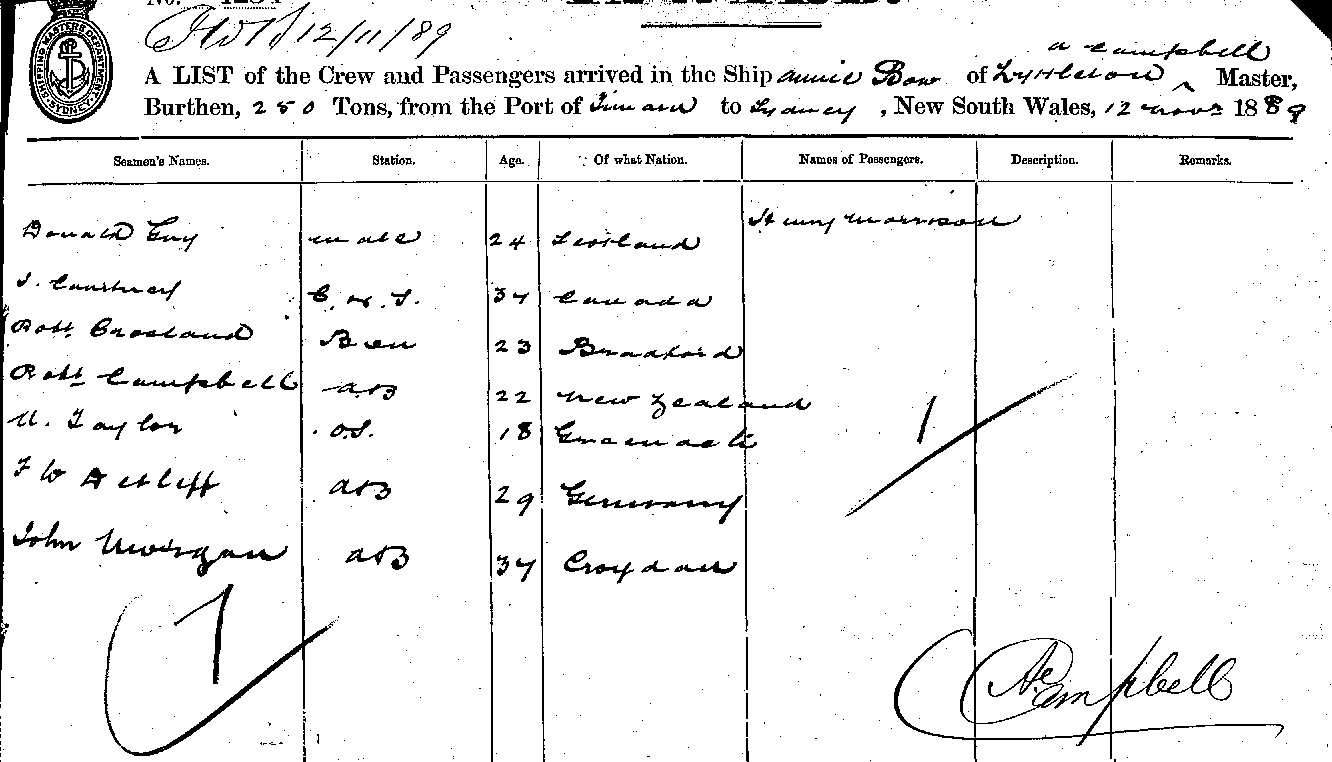 12/11/89
SHIPPING MASTERS DEPARTMENT SYDNEY
A Campbell
A LIST of the Crew and Passengers arrived in the Ship Annie Bow of Lyttleton ^ Master,
Burthen, 250 Tons, from the Port of Timaru to Sydney, New South Wales, 12 Novr 1889
Seamen's Names. Station. Age. Of what Nation. Names of Passengers. Description. Remarks.
Donald Guy mate 24 Scotland Henry Morrison
J. 37 Canada
Robt. Crosland 23 Bradford
Robt Campbell AB 22 New Zealand 1
Taylor O.S. 18
F W Detleff AB 29 Germany
John Morgan AB 37 Croydan
7
A Campbell